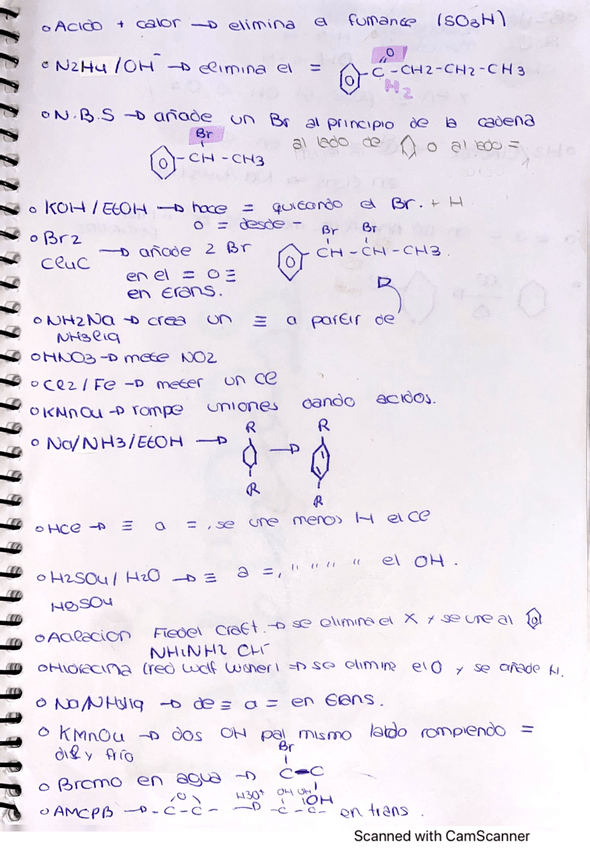 o Acido + calor → elimina el fumante (SO3H)
o N2H4 / OH⁻ → elimina el = C-CH2-CH2-CH3
O
H2
o N.B.S → añade un Br al principio de la cadena
Br al lado de o al lado =
-CH-CH3
o KOH / EtOH → hace = quitando el Br. + H
o = desde -
o Br2 → añade 2 Br
Br Br
CH-CH-CH3.
Cl4C en el = o ≡
en trans.
o NH2Na → crea un ≡ a partir de
NH3liq
o HNO3 → mete NO2
o Cl2 / Fe → meter un Cl
o KMnO4 → rompe uniones dando acidos.
R R
o Na/NH3/EtOH → →
R R
o HCl → ≡ a =, se une menos H el Cl
o H2SO4 / H2O → ≡ a =, " " " " el OH.
HgSO4
o Acilacion Fiedel Craft. → se elimina el X y se une al
NH2NH2 OH⁻
o Hidracina (red Wolf Wisher) → se elimina el O y se añade H.
o Na/NH3liq → de ≡ a = en trans.
o KMnO4 → dos OH pal mismo lado rompiendo =
dil y frío
Br
o Bromo en agua → C-C
OH
o AMCPB → -C-C- H3O+ → -C-C- en trans.
O OH OH
Scanned with CamScanner